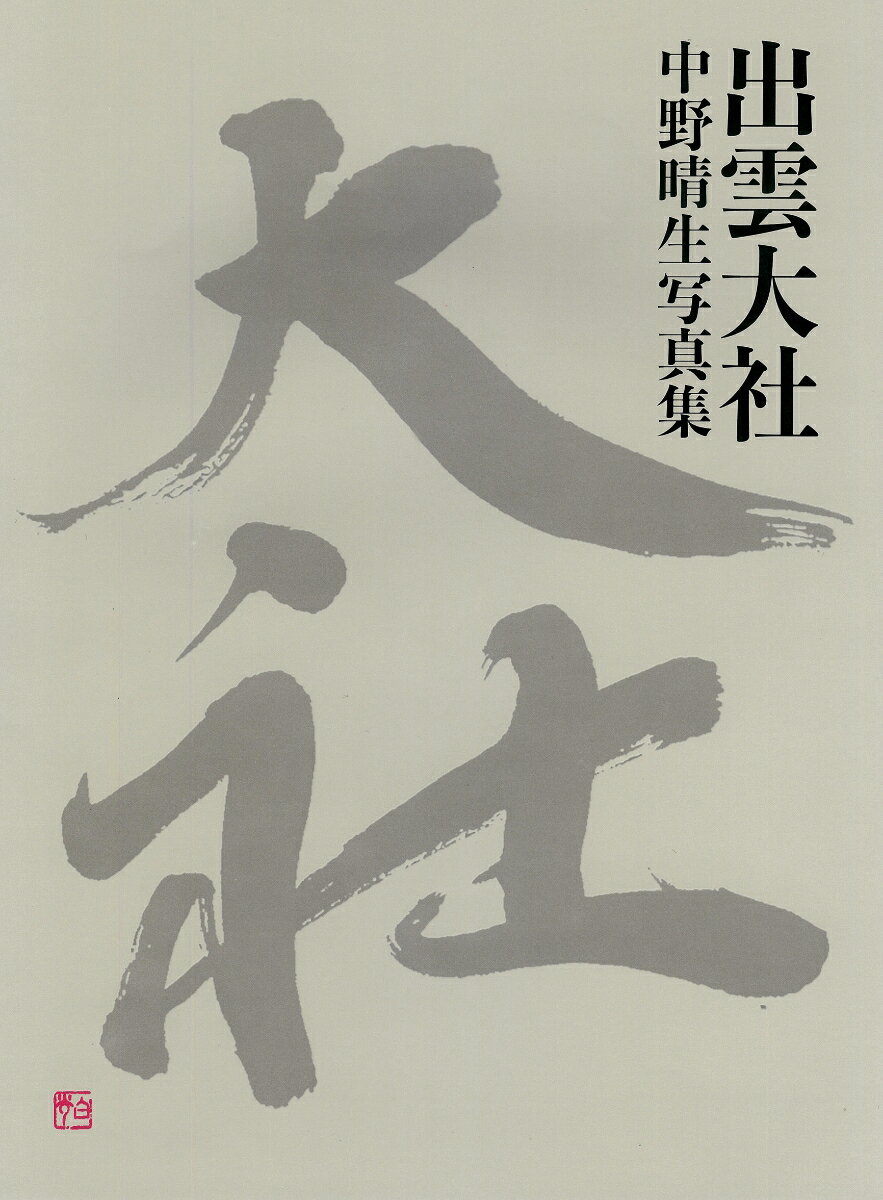 出雲大社
中野晴生写真集
大社